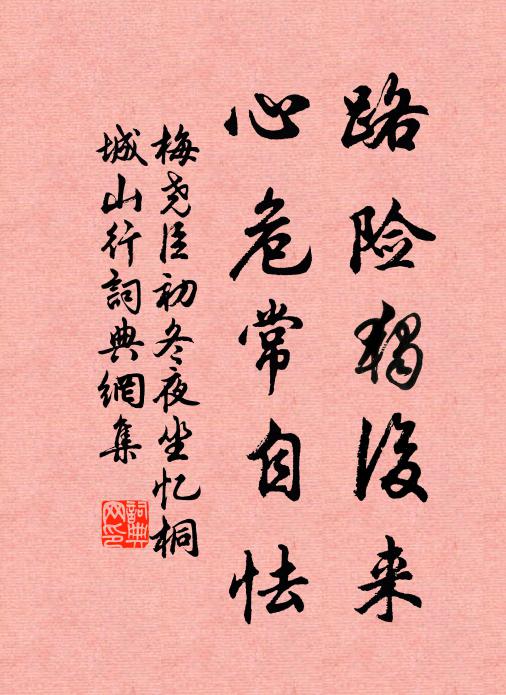 路险独後来
心危常自怯
梅尧臣初冬夜坐忆桐
城山行詞典網集
詞典
网印